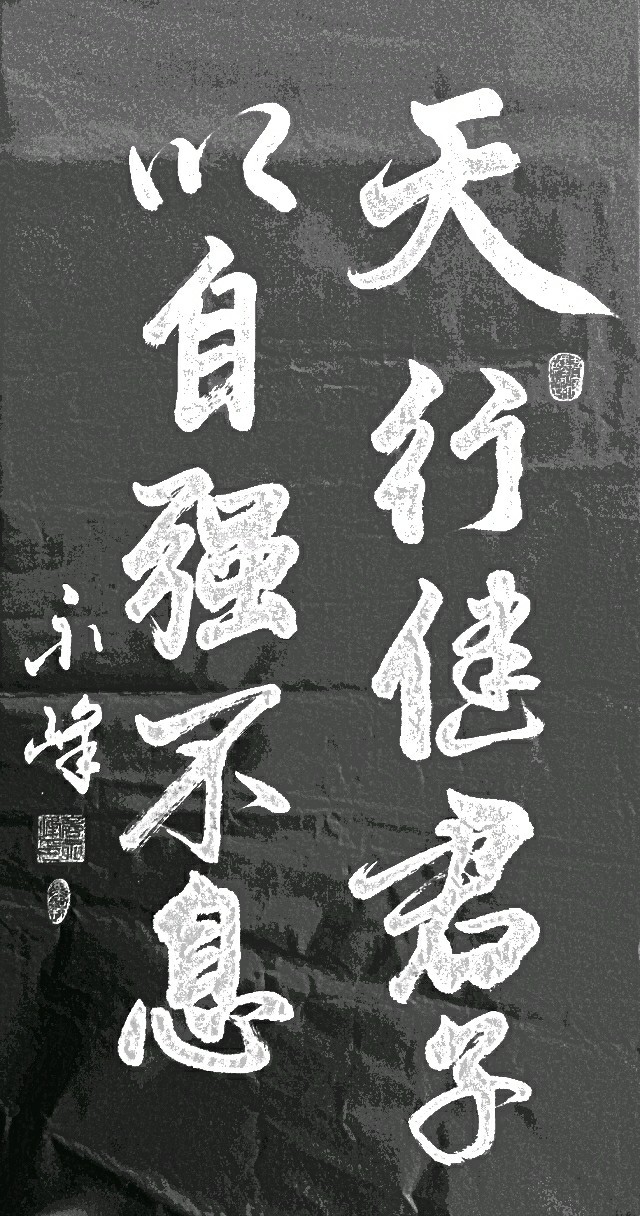 天行健君子
以自强不息
永峰